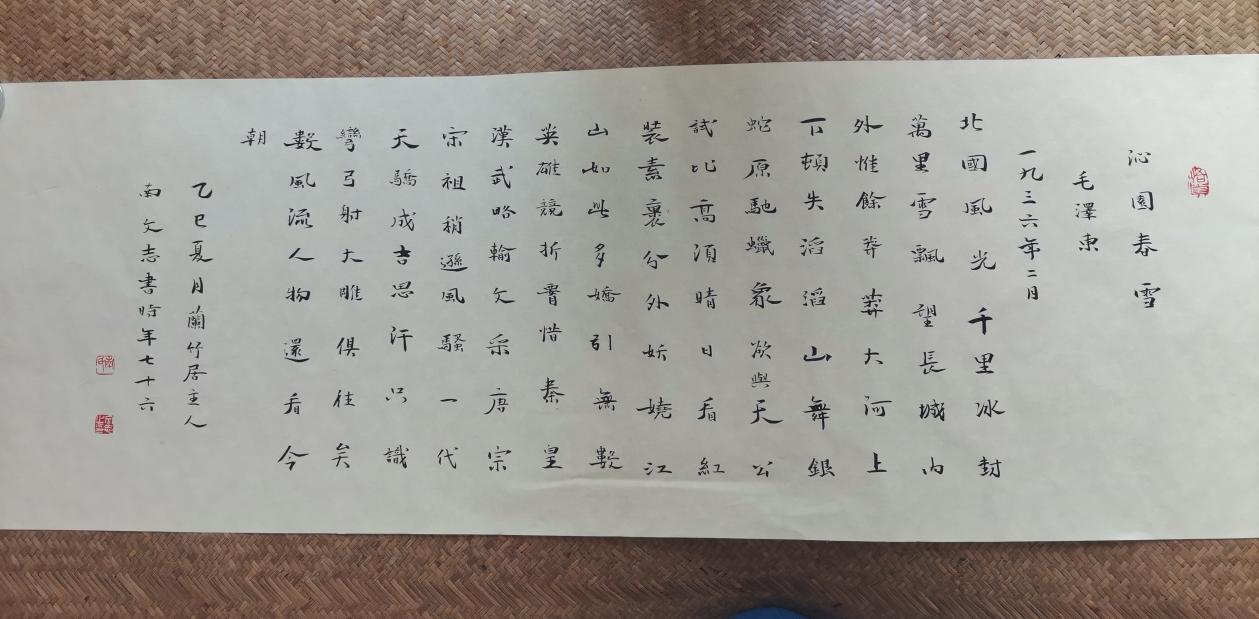 沁園春雪
毛澤東
一九三六年二月
北國風光千里冰封
萬里雪飄望長城内
外惟餘莽莽大河上
下頓失滔滔山舞銀
蛇原馳蠟象欲與天公
試比高須晴日看紅
裝素裹分外妖嬈江
山如此多嬌引無數
英雄競折腰惜秦皇
漢武略輸文采唐宗
宋祖稍遜風騷一代
天驕成吉思汗只識
彎弓射大雕俱往矣
數風流人物還看今
朝
乙巳夏月蘭竹居主人
南文志書時年七十六